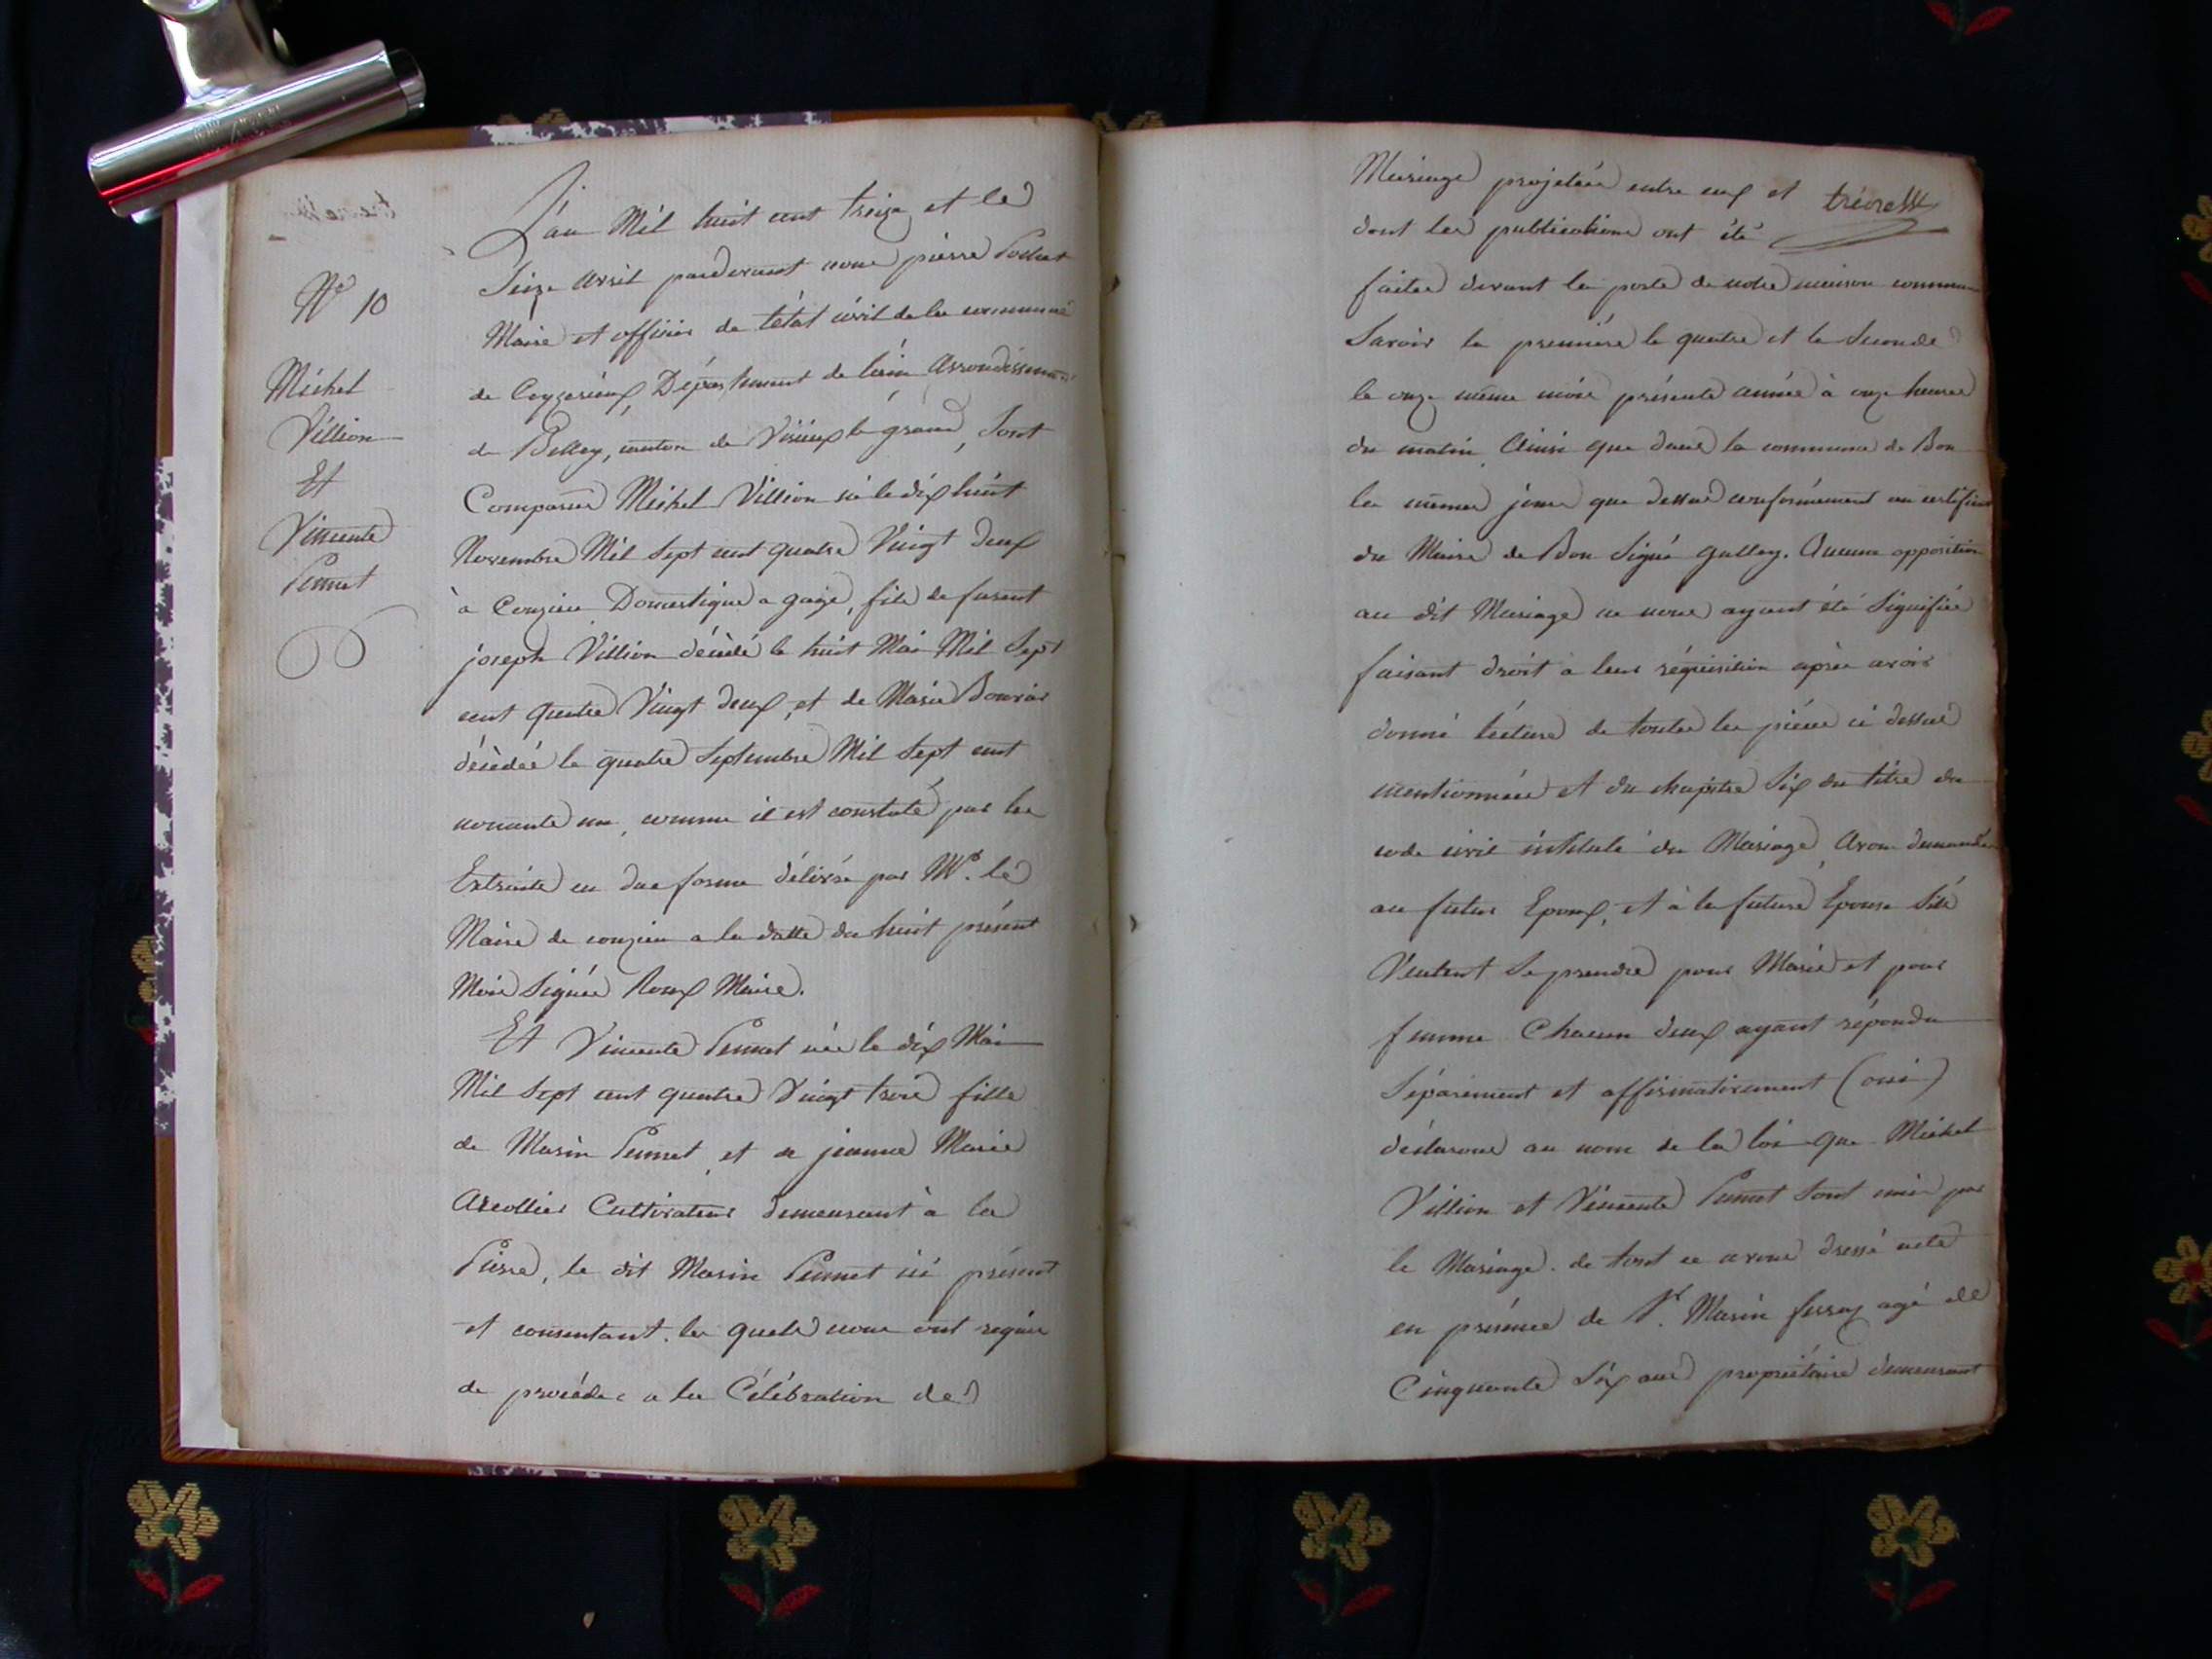 N° 10
Michel
Villion
Et
Vincente
Pennet
L'an Mil huit cent treize et le
Seize avril pardevant nous pierre
Maire et officier de l'état civil de la commune
de Ceyzerieux, Département de l'ain Arrondissement
de Belley, canton de Virieux le grand, Sont
Comparus Michel Villion né le dix huit
Novembre Mil Sept cent quatre Vingt deux
à Conzieu Domestique a gage, fils de furent
joseph Villion décédé le huit Mai Mil Sept
cent quatre Vingt deux, et de Marie
décédée le quatre Septembre Mil Sept cent
nonante un, comme il est constaté par les
Extraits en due forme délivrés par Mr. le
Maire de conzieu a la datte du huit présent
Mois Signés Roux Maire.
Et Vincente Pennet née le dix Mai
Mil Sept cent quatre Vingt trois fille
de Marin Pennet, et de jeanne Marie
Arcollier Cultivateur demeurant à la
Pierre, le dit Marin Pennet ici présent
et consentant. les quels nous ont requis
de procéder a la Célébration de
Mariage projetée entre eux et
dont les publications ont été
faites devant la porte de notre maison commune
Savoir la première le quatre et la Seconde
le onze même mois présente année à onze heures
du matin, Ainsi que dans la commune de Bon
les mêmes jours que dessus conformément au certificat
du Maire de Bon Signé gallay. Aucune opposition
au dit Mariage ne nous ayant été Signifiée
faisant droit à leur réquisition après avoir
donné lécture de toutes les pièces ci dessus
mentionnées et du chapitre Six du titre du
code civil intitulé du Mariage, Avons demandé
au futur Epoux, et à la future Epouse S'ils
Veulent Se prendre pour Mari et pour
femme Chacun deux ayant répondu
Séparément et affirmativement (oui)
déclarons au nom de la loi que Michel
Villion et Vincente Pennet Sont unis par
le Mariage. de tout ce avons dressé acte
en présence de Sr. Marin ferraz agé de
Cinquante Six ans propriétaire demeurant